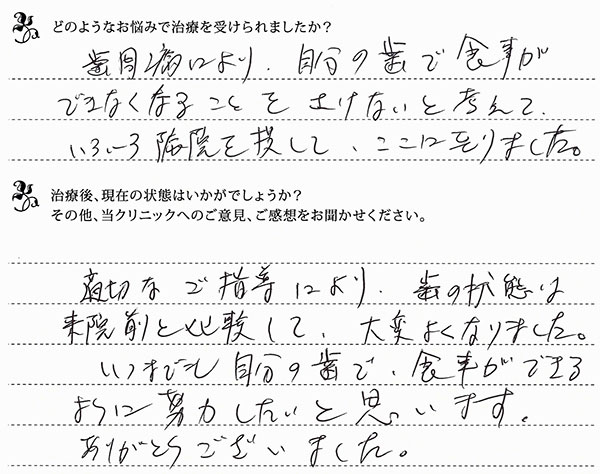 どのようなお悩みで治療を受けられましたか?
歯周病により、自分の歯で食事が
できなくなることを さけないと考えて、
いろいろ病院を探して、ここに至りました。
治療後、現在の状態はいかがでしょうか?
その他、当クリニックへのご意見、ご感想をお聞かせください。
適切なご指導により、歯の状態は
来院前と比較して、大変よくなりました。
いつまでも自分の歯で、食事ができる
ように努力したいと思います。
ありがとうございました。